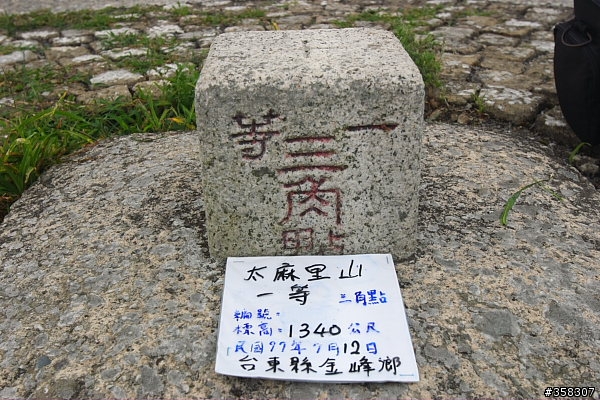 一等
三角點
太麻里山
一等 三角點
編號:
標高:1340公尺
民國99年9月12日
台東縣金峰鄉
#358307